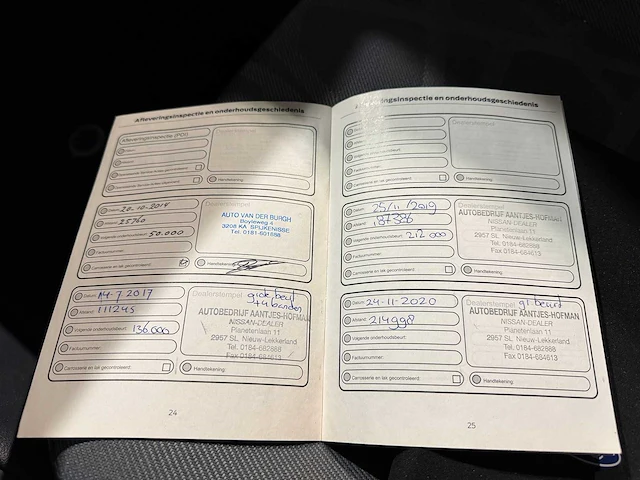 Afleveringsinspectie en onderhoudsgeschiedenis
Afleveringsinspectie (PDI)
Dealerstempel
Carrosserie en lak gecontroleerd
Handtekening:
Datum:
20-10-2014
Afstand:
25760
Volgende onderhoudsbeurt:
50.000
Factuurnummer:
Carrosserie en lak gecontroleerd:
Dealerstempel
AUTO VAN DER BURGH
Boyleweg 4
3208 KA SPIJKENISSE
Tel. 0181-601688
Handtekening:
Datum: 14-7 2017
Afstand: 111245
Volgende onderhoudsbeurt: 136.000
Factuurnummer:
Carrosserie en lak gecontroleerd:
Dealerstempel grote beurt
+4 banden
AUTOBEDRIJF AANTJES-HOFMAN
NISSAN-DEALER
Planetenlaan 11
2957 SL Nieuw-Lekkerland
Tel. 0184-682888
Fax 0184-684613
Handtekening:
24
Afleveringsinspectie en onderhoudsgeschiedenis
Datum:
Afstand:
Volgende onderhoudsbeurt:
Factuurnummer:
Carrosserie en lak gecontroleerd:
Dealerstempel
Handtekening:
Datum: 25/11/2019
Afstand: 187386
Volgende onderhoudsbeurt: 212000
Factuurnummer:
Carrosserie en lak gecontroleerd:
Dealerstempel
AUTOBEDRIJF AANTJES-HOFMAN
NISSAN-DEALER
Planetenlaan 11
2957 SL Nieuw-Lekkerland
Tel. 0184-682888
Fax 0184-684613
Handtekening:
Datum: 24-11-2020
Afstand: 214998
Volgende onderhoudsbeurt:
Factuurnummer:
Carrosserie en lak gecontroleerd:
Dealerstempel gr beurt
AUTOBEDRIJF AANTJES-HOFMAN
NISSAN-DEALER
Planetenlaan 11
2957 SL Nieuw-Lekkerland
Tel. 0184-682888
Fax 0184-684613
Handtekening:
25